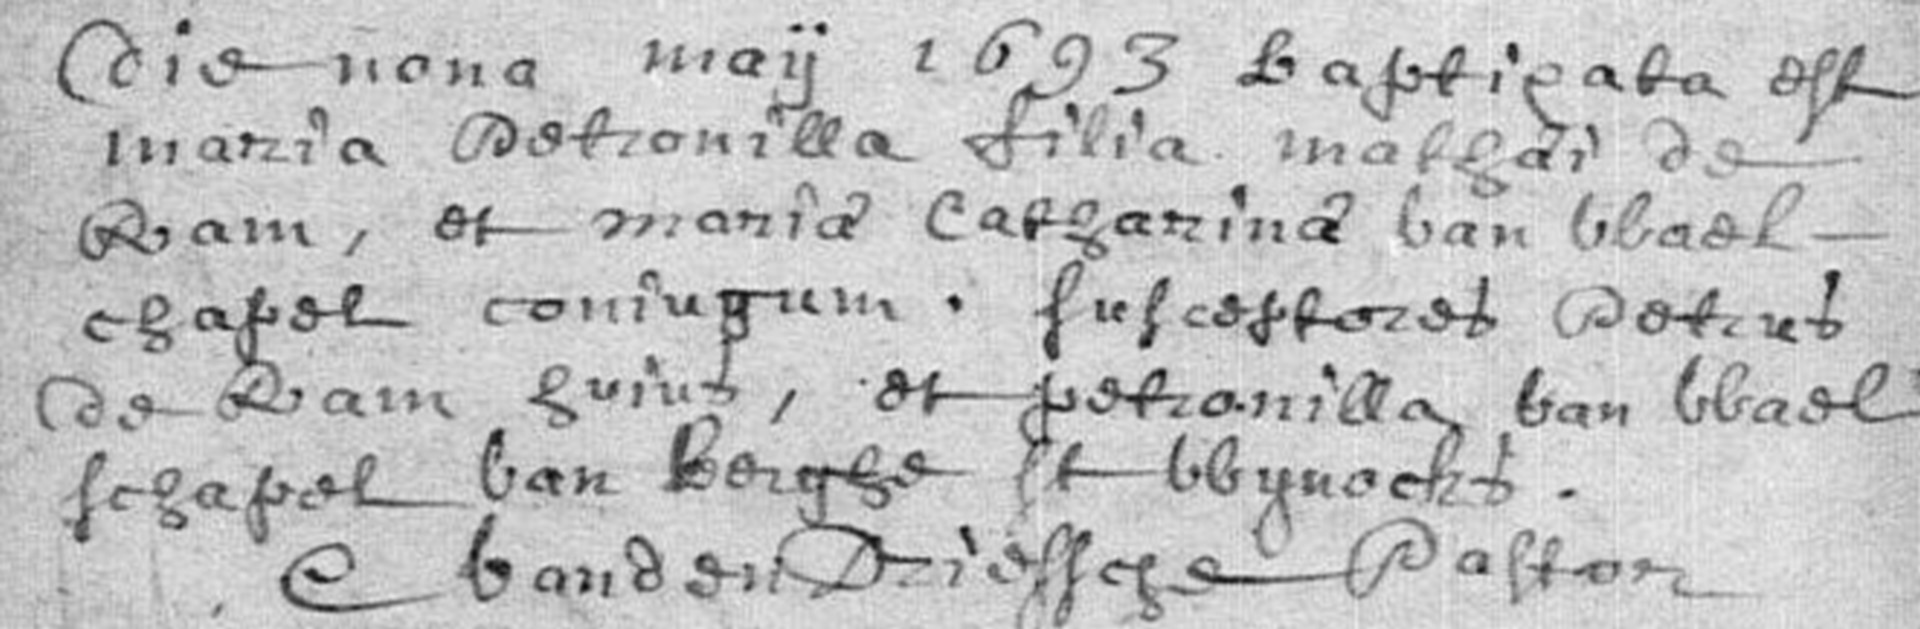 Die nona maij 1693 Baptizata est
maria Petronilla filia mathæi de
Ram, et mariæ Catharinæ van Wael
chapel coniugum. susceptores Petrus
de Ram huius, et petronilla van Wael
schapel van Berghe St Wynocks.
C vanden Driessche Pastor